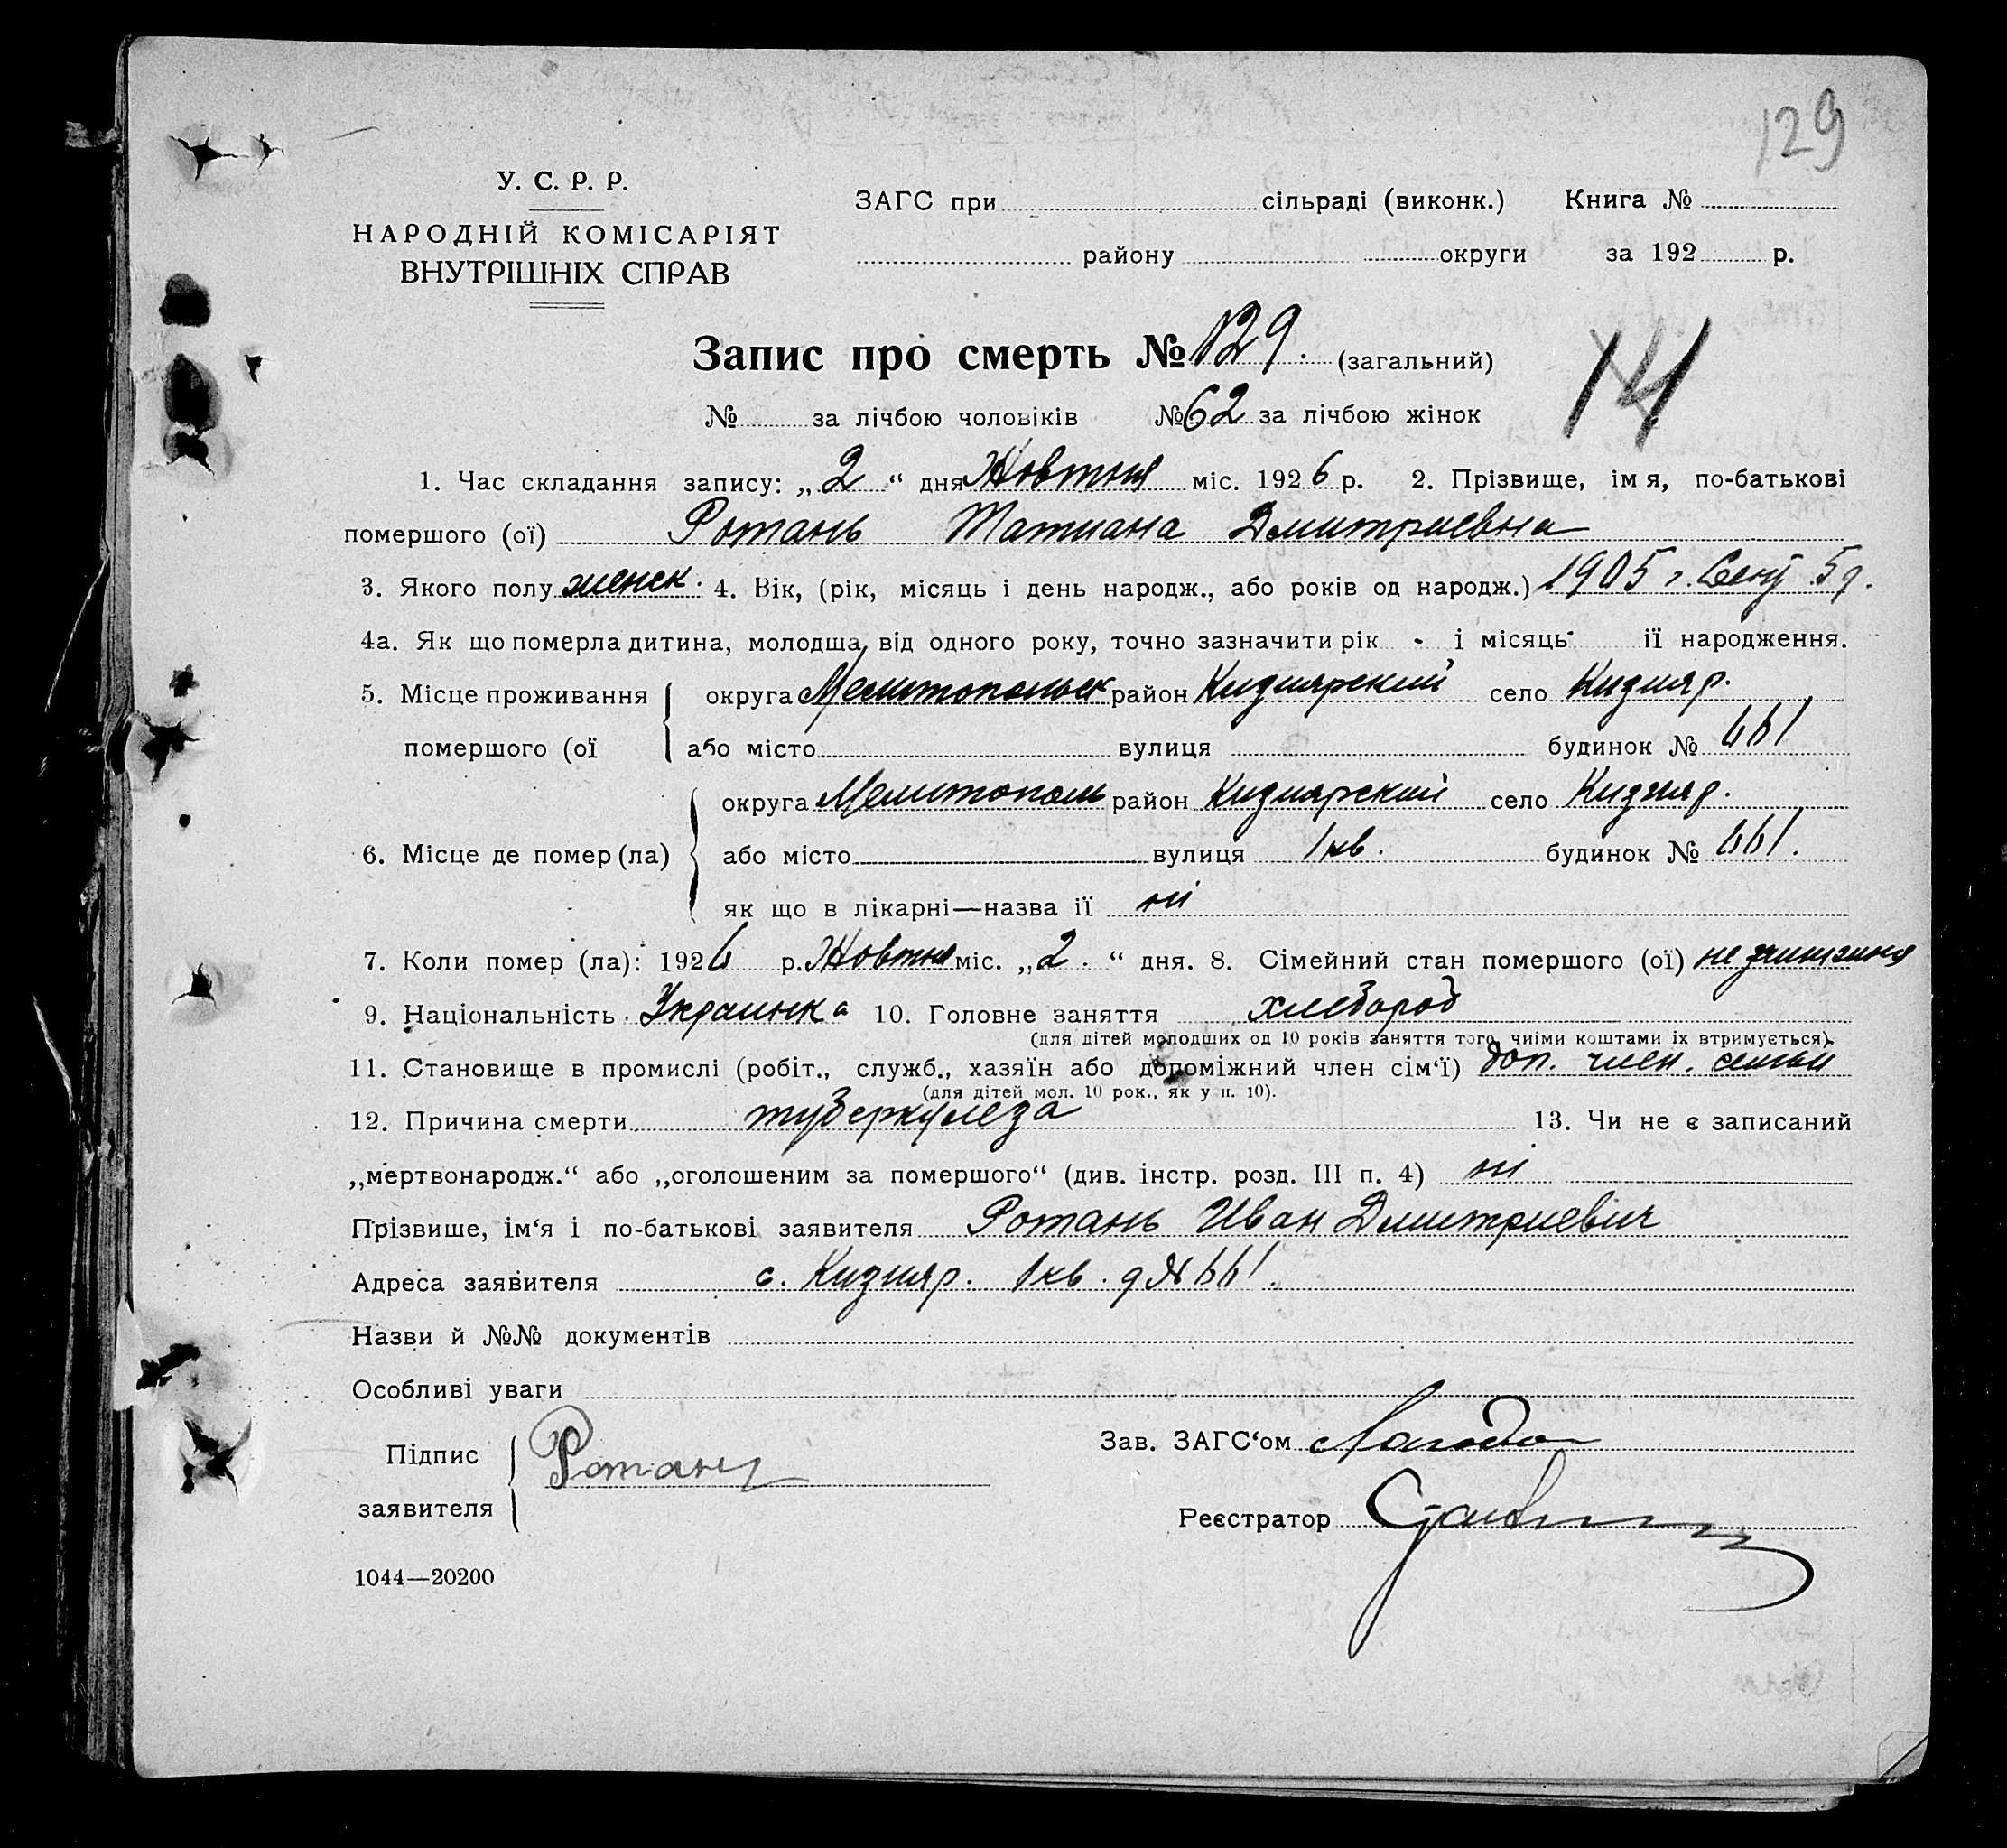 129
У. С. Р. Р.
НАРОДНІЙ КОМІСАРІЯТ
ВНУТРІШНІХ СПРАВ
ЗАГС при сільраді (виконк.) Книга №
району округи за 192 р.
Запис про смерть № 129. (загальний)
№ за лічбою чоловіків № 62 за лічбою жінок
1. Час складання запису: „2“ дня Жовтня міс. 1926 р. 2. Прізвище, імя, по-батькові
помершого (ої) Ротань Татиана Дмитриевна
3. Якого полу женск. 4. Вік, (рік, місяць і день народж., або років од народж.) 1905 г. Сент. 5 д.
4а. Як що померла дитина, молодша від одного року, точно зазначити рік - і місяць - ії народження.
5. Місце проживання округа Мелитопольск район Кизиярский село Кизияр.
помершого (ої або місто вулиця будинок № 661
округа Мелитополь район Кизиярский село Кизияр.
6. Місце де помер (ла) або місто вулиця 1 кв. будинок № 661.
як що в лікарні—назва ії ні
7. Коли помер (ла): 1926 р. Жовтня міс. „2.“ дня. 8. Сімейний стан помершого (ої) не
9. Національність Украинка 10. Головне заняття хлебороб
(для дітей молодших од 10 років заняття того, чиїми коштами їх втримується).
11. Становище в промислі (робіт., служб., хазяїн або допоміжний член сім‘ї) доп. член. семьи
(для дітей мол. 10 рок., як у п. 10).
12. Причина смерти туберкулеза 13. Чи не є записаний
„мертвонародж.“ або „оголошеним за помершого“ (див. інстр. розд. III п. 4) ні
Прізвище, ім‘я і по-батькові заявителя Ротань Иван Дмитриевич
Адреса заявителя с. Кизияр. 1 кв. д № 661.
Назви й №№ документів
Особливі уваги
Підпис заявителя Ротань
Зав. ЗАГС‘ом
Реєстратор
1044—20200